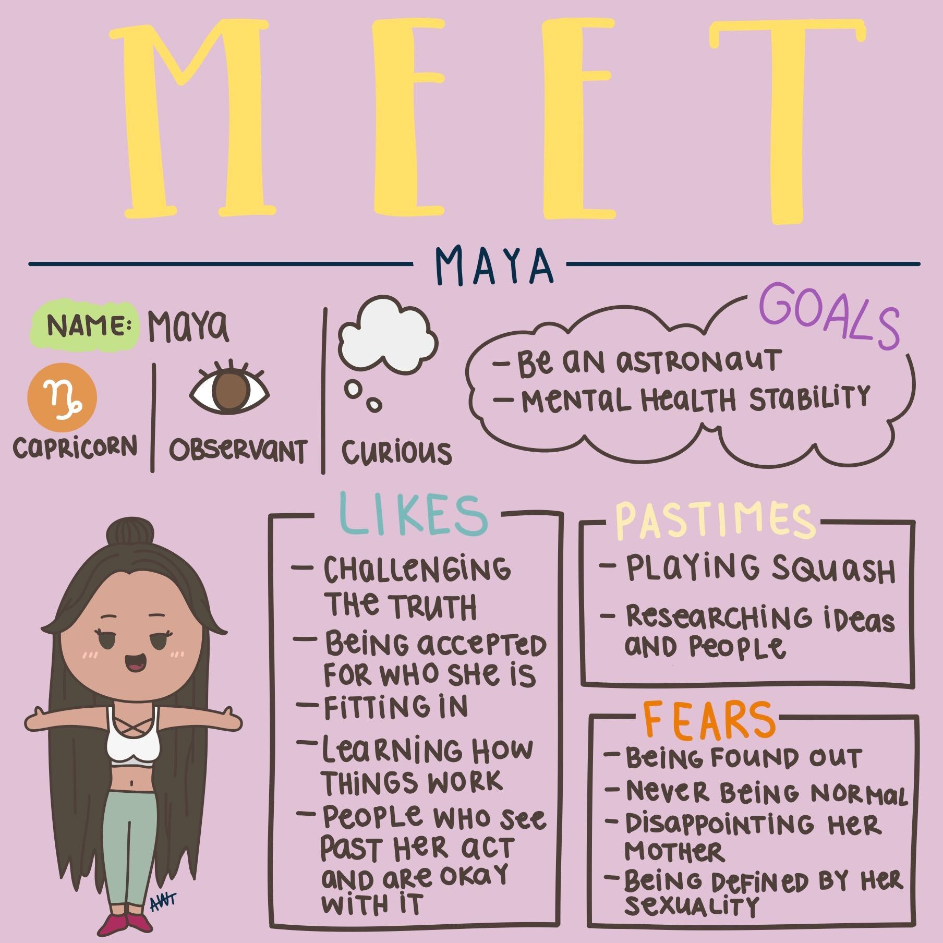 MEET
MAYA
NAME: MAYA
CAPRICORN
OBSERVANT
CURIOUS
GOALS
- BE AN ASTRONAUT
- MENTAL HEALTH STABILITY
LIKES
- CHALLENGING
THE TRUTH
- BEING ACCEPTED
FOR WHO SHE IS
- FITTING IN
- LEARNING HOW
THINGS WORK
- PEOPLE WHO SEE
PAST HER ACT
AND ARE OKAY
WITH IT
PASTIMES
- PLAYING SQUASH
- RESEARCHING IDEAS
AND PEOPLE
FEARS
- BEING FOUND OUT
- NEVER BEING NORMAL
- DISAPPOINTING HER
MOTHER
- BEING DEFINED BY HER
SEXUALITY
AWT